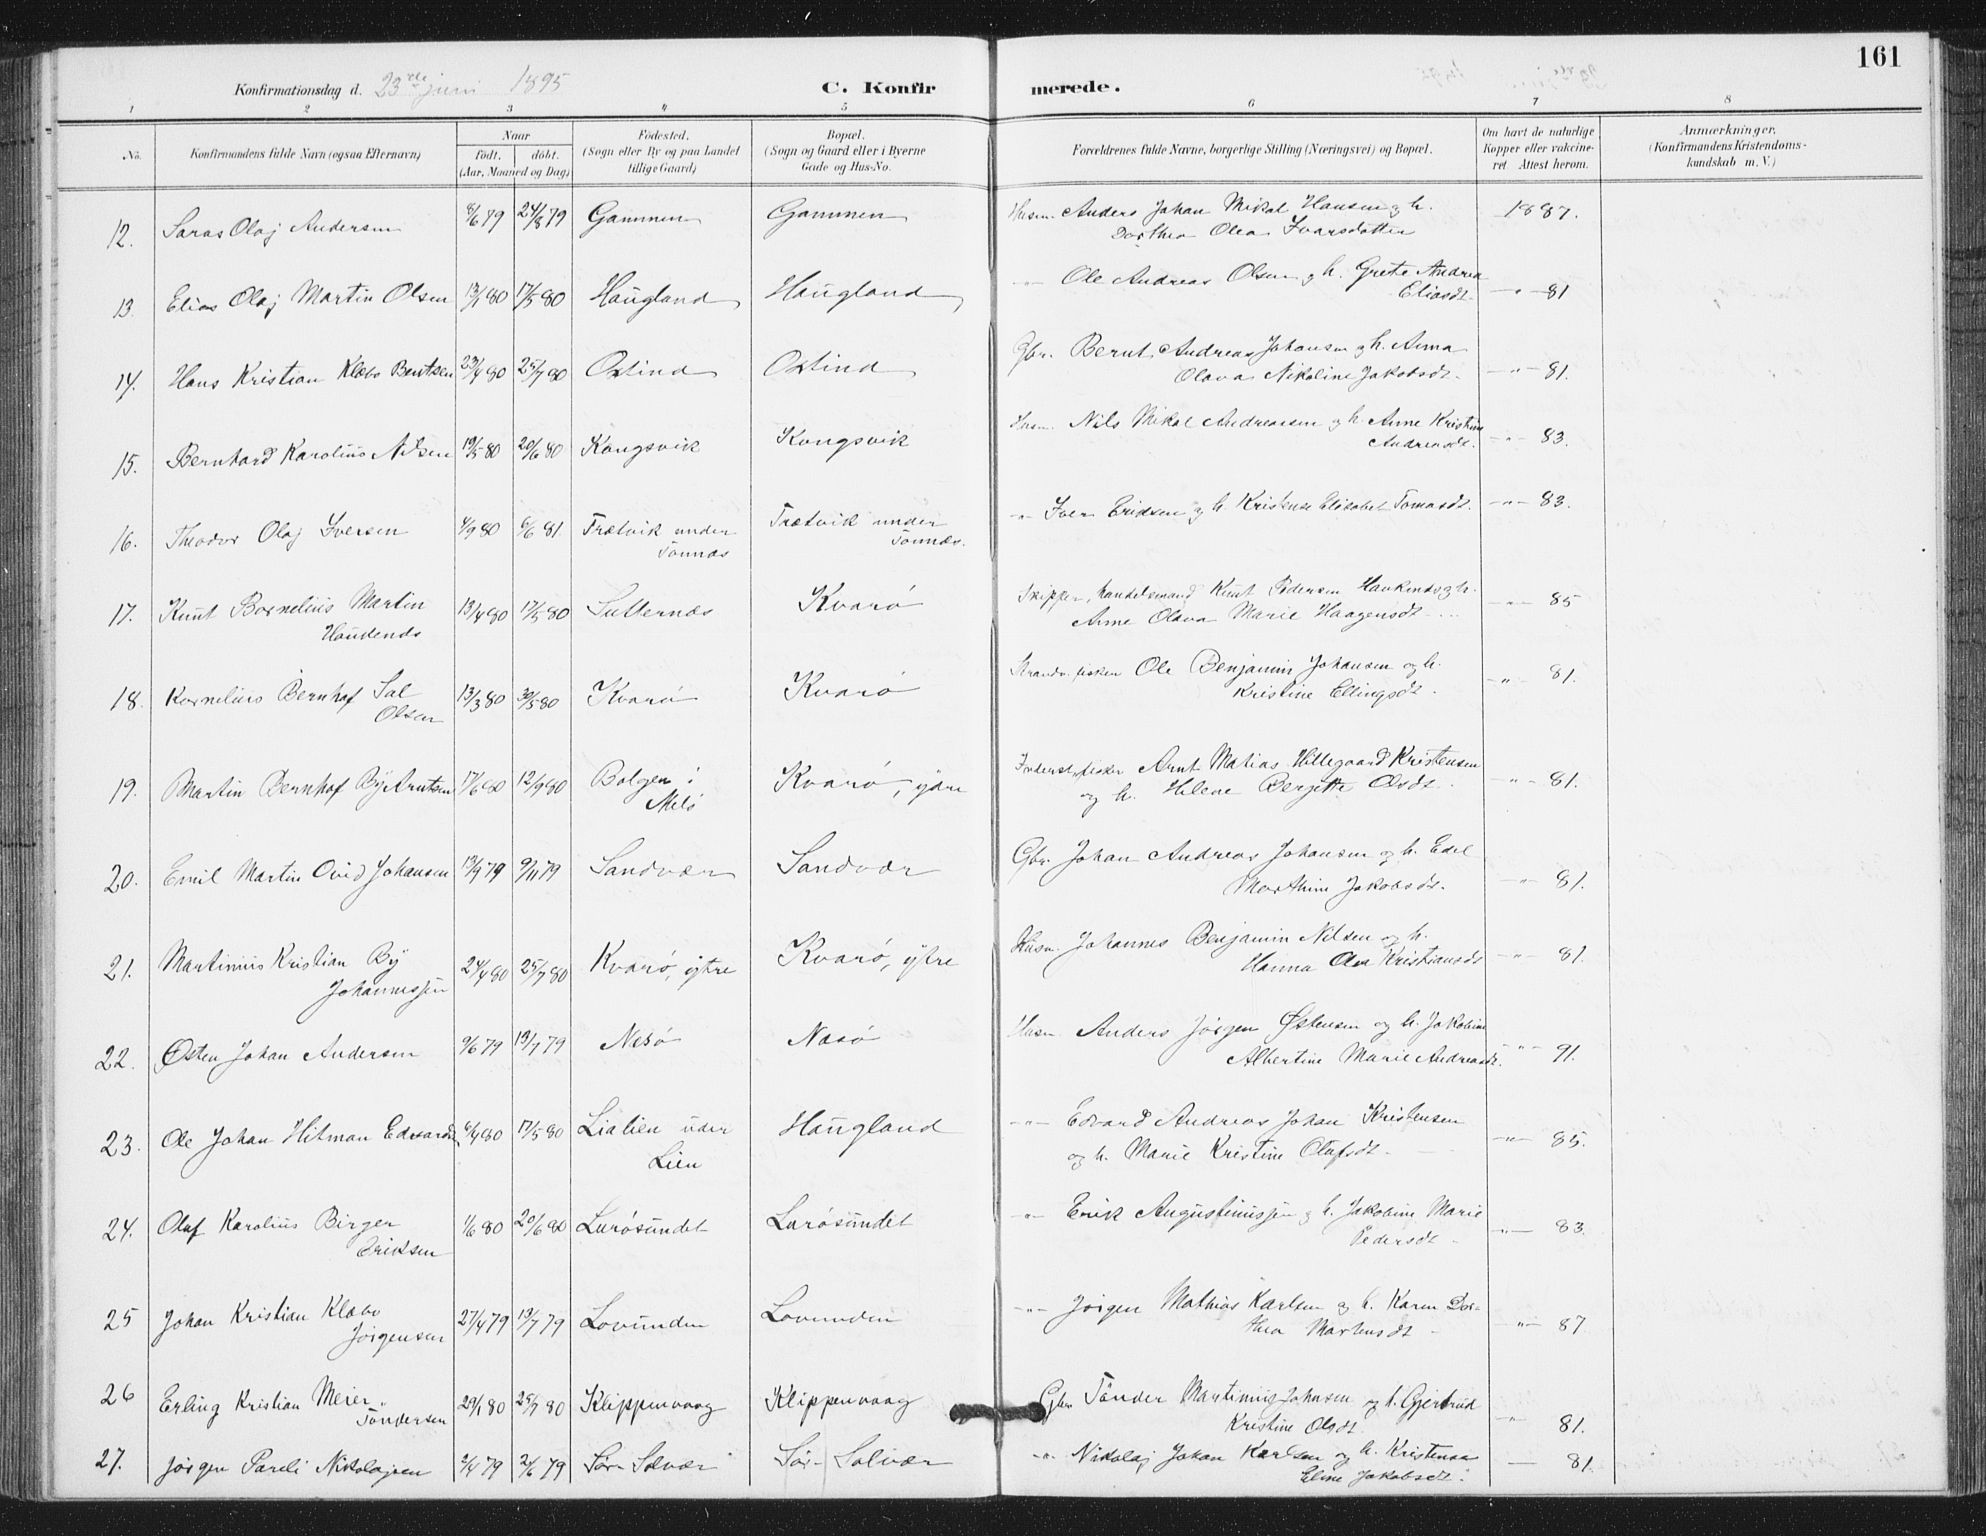 161
Konfirmationsdag d. 23rde juni 1895 C. Konfirmerede.
1 2 3 4 5 6 7 8
No. Konfirmandens fulde Navn (ogsaa Efternavn) Naar født. døbt. (Aar, Maaned og Dag) Fødested. (Sogn eller By og paa Landet tillige Gaard) Bopæl. (Sogn og Gaard eller i Byerne Gade og Hus-No. Forældrenes fulde Navne, borgerlige Stilling (Næringsvei) og Bopæl. Om havt de naturlige Kopper eller vakcineret Attest herom. Anmærkninger, (Konfirmandens Kristendomskundskab m. V.)
12. Olaj Andersen 8/6 79 24/8 79 Gammen Gammen Husm. Anders Johan Mikal Hansen og h. 1887.
Dorthea Olea Ivarsdatter
13. Elias Olaj Martin Olsen 13/1 80 17/5 80 Haugland Haugland -"- Ole Andreas Olsen og h. Grete Andrea
Eliasdt. -"- 81
14. Hans Kristian Klæbo Berntsen 23/4 80 25/7 80 Oxtind Oxtind Gbr. Bernt Andreas Johansen og h. Anna
Olava Nikoline Jakobsdt. -"- 81.
15. Bernhard Karolius Nilsen 19/5 80 20/6 80 Kongsvik Kongsvik Husm. Nils Mikal Andreassen og h. Anne Kristine
Andreasdt. -"- 83.
16. Theodor Olaj Iversen 4/9 80 6/6 81. Trætvik under Tonnæs Trætvik under Tonnæs. " Iver Eriksen og h. Elisabet Tomasdt. -"- 83.
17. Knut Kornelius Martin 13/4 80 17/5 80 Kvarø Skipper, handelsmand Knut Pedersen og h.
Anne Olava Marie Haagensdt. -"- 85
18. Kornelius Bernhof Sal 13/3 80 30/5 80 Kvarø Kvarø Ole Benjamin Johansen og h.
Olsen Kristine Ellingsdt. -"- 81.
19. Martin Bernhof By Arntsen 17/6 80 12/9 80 Bolgen i Melø Kvarø, ytre Arnt Matias Hillegaard Kristensen
og h. Helene Bergitte Olsdt. -"- 81.
20. Emil Martin Ovid Johansen 13/9 79 9/11 79 Sandvær Sandvær Gbr. Johan Andreas Johansen og h. Edel
Marthine Jakobsdt. -"- 81.
21. Martinius Kristian By 24/4 80 25/7 80 Kvarø, ytre Kvarø, ytre Husm. Johannes Benjamin Nilsen og h.
Johannessen Hanna Olea Kristiansdt. -"- 81.
22. Østen Johan Andersen 9/6 79 13/7 79 Nesø Nesø Husm Anders Jørgen Østensen og h. Jakobine
Albertine Marie Andreasdt. -"- 91.
23. Ole Johan Hitman Edvardsen 6/4 80 17/5 80 Lialien under Lien Haugland -"- Edvard Andreas Johan Kristensen
og h. Marie Kristine Olufsdt. -"- 85.
24. Oluf Karolius Birger 1/6 80 20/6 80 Lurøsundet Lurøsundet -"- Erik Augustinussen og h. Jakobine Marie
Eriksen Pedersdt. -"- 83.
25 Johan Kristian Klæbo 27/4 79 13/7 79 Lovunden Lovunden -"- Jørgen Mathias Karlsen og h. Karen Dor-
Jørgensen thea Martensdt -"- 87.
26 Erling Kristian Meier 29/1 80 25/7 80 Klippenvaag Klippenvaag Gbr. Tønder Martinius Johnsen og h. Gjertrud
Tøndersen Kristine Olsdt. " 81.
27. Jørgen Pareli Nikolajsen 2/4 79 2/6 79 Sør-Solvær Sør-Solvær -"- Nikolaj Johan Karlsen og h. Kristenaa
Eline Jakobsdt. — 81.